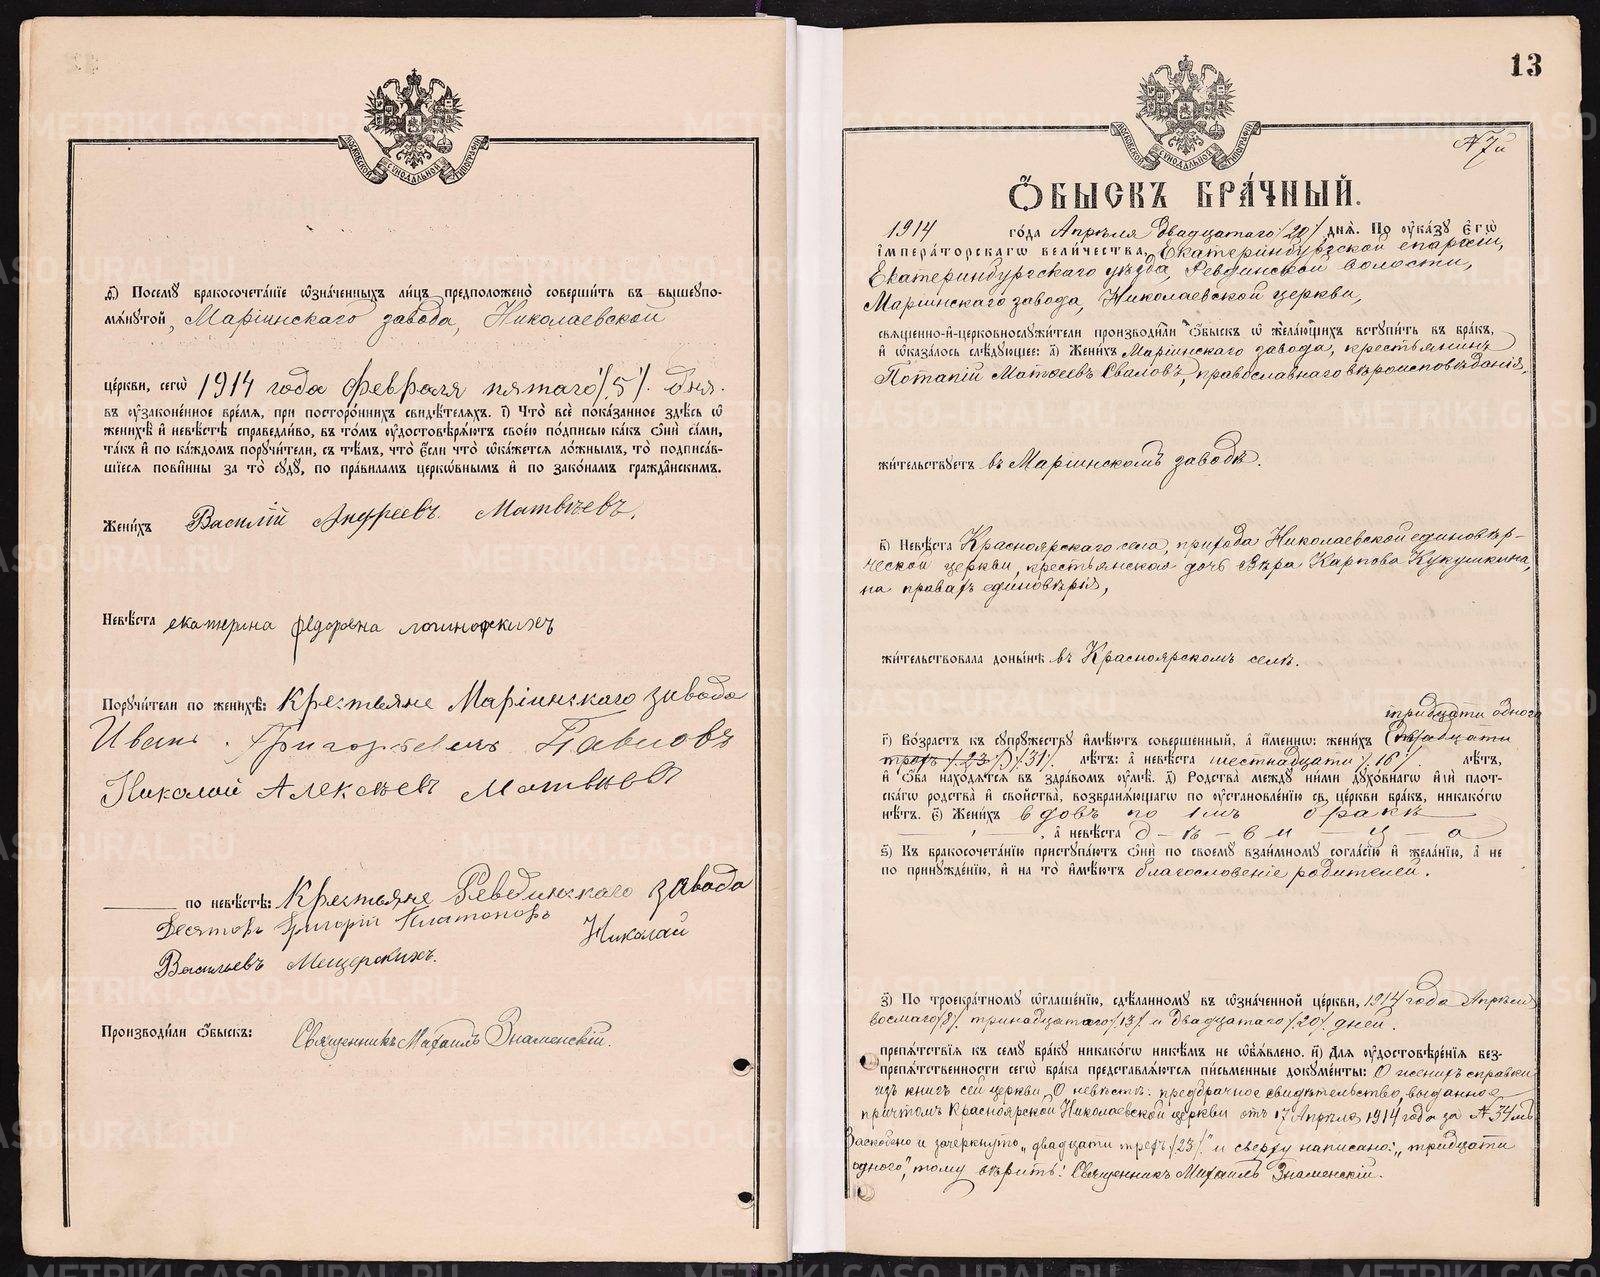 МОСКОВСКОЙ СУНОДАЛЬНОЙ ТИПОГРАФІИ
ѳ҃) Посемꙋ бракосочета́нїе ѡ҆зна́ченныхъ ли́цъ предположено̀ соверши́ть въ вышеꙋпо-
мѧ́нꙋтой, Маріинскаго завода, Николаевской
це́ркви, сегѡ̀ 1914 года февраля пятаго /5/. дня.
въ ᲂу҆зако́ненное вре́мѧ, при посторо́ннихъ свидѣ́телѧхъ. і҃) Что̀ всѐ пока́занное здѣ́сь ѡ҆
женихѣ̀ и҆ невѣ́стѣ справедли́во, въ то́мъ ᲂу҆достовѣрѧ́ютъ свое́ю по́дписью ка́къ ѻ҆нѝ са́ми,
та́къ и҆ по ка́ждомъ порꙋчи́тели, съ тѣ́мъ, что̀ є҆́сли что̀ ѡ҆ка́жетсѧ ло́жнымъ, то̀ подписа́в-
шїесѧ пови́нны за то̀ сꙋдꙋ̀, по пра́виламъ церко́внымъ и҆ по зако́намъ гражда́нскимъ.
Жени́хъ Василій Андреевъ Матвѣевъ.
Невѣ́ста екатерина федоровна логиновскихъ
Порꙋчи́тели по женихѣ̀: Крестьяне Маріинскаго завода
Иванъ Григорьевичъ Павловъ
Николай Алексѣевъ Матвѣевъ
по невѣ́стѣ: Крестьяне Ревдинскаго завода
Десятовъ Григорій Платоновъ Николай
Васильевъ Мещерскихъ.
Производи́ли ѻ҆́быскъ: Священникъ Михаилъ Знаменскій.
13
МОСКОВСКОЙ СУНОДАЛЬНОЙ ТИПОГРАФІИ
№ 7й
Ѻ҆́БЫСКЪ БРА́ЧНЫЙ.
1914 го́да Апрѣля Двадцатаго /20/ днѧ̀. По ᲂу҆ка́зꙋ є҆гѡ̀
і҆мпера́торскагѡ вели́чества, Екатеринбургской епархіи,
Екатеринбургскаго уѣзда, Ревдинской волости,
Маріинскаго завода, Николаевской церкви,
свѧще́нно-и҆-церковнослꙋжи́тели производи́ли ѻ҆́быскъ ѡ҆ жела́ющихъ встꙋпи́ть въ бра́къ,
и҆ ѡ҆каза́лось слѣ́дꙋющее: а҃) Жени́хъ Маріинскаго завода, крестьянинъ
Потапій Матѳеевъ Сваловъ, православнаго вѣроисповѣданія,
жи́тельствꙋетъ въ Маріинскомъ заводѣ.
в҃) Невѣ́ста Красноярскаго села, прихода Николаевской единовѣр-
ческой церкви, крестьянская дочь Вѣра Карпова Кукушкина,
на правахъ единовѣрія,
жи́тельствовала доны́нѣ въ Красноярскомъ селѣ.
тридцати одного
г҃) Во́зрастъ къ сꙋпрꙋ́жествꙋ и҆мѣ́ютъ соверше́нный, а҆ и҆́меннѡ: жени́хъ (Двадцати
трехъ /23/) /31/. лѣ́тъ: а҆ невѣ́ста шестнадцати /16/. лѣ́тъ,
и҆ ѻ҆́ба нахо́дѧтсѧ въ здра́вомъ ᲂу҆мѣ̀. д҃) Родства̀ междꙋ̀ ни́ми дꙋхо́внагѡ и҆лѝ пло́т-
скагѡ родства̀ и҆ сво́йства, возбранѧ́ющагѡ по ᲂу҆становле́нїю св. це́ркви бра́къ, никако́гѡ
нѣ́тъ. є҃) Жени́хъ вдовъ по 1мъ бракѣ
, а҆ невѣ́ста д – ѣ – в и – ц – а
ѕ҃) Къ бракосочета́нїю пристꙋпа́ютъ ѻ҆нѝ по своемꙋ̀ взаи́мномꙋ согла́сїю и҆ жела́нїю, а҆ не
по принꙋжде́нїю, и҆ на то̀ и҆мѣ́ютъ благословеніе родителей.
з҃) По троекра́тномꙋ ѡ҆глаше́нїю, сдѣ́ланномꙋ въ ѡ҆зна́ченной це́ркви, 1914 года Апрѣля
восмаго /8/. тринадцатаго /13/ и двадцатаго /20/. дней.
препѧ́тствїѧ къ семꙋ̀ бра́кꙋ никако́гѡ никѣ́мъ не ѡ҆бъѧ́влено. и҃) Для ᲂу҆достовѣре́нїѧ без-
препѧ́тственности сегѡ̀ бра́ка представлѧ́ютсѧ пи́сьменные докꙋме́нты: О женихѣ справки
изъ книгъ сей церкви. О невѣстѣ: предбрачное свидѣтельство, выданное
причтомъ Красноярской Николаевской церкви отъ 17 Апрѣля 1914 года за № 34мъ
Заскоблено и зачеркнуто „двадцати трехъ /23/“ и сверху написано: „тридцати
одного“, тому вѣрить! Священникъ Михаилъ Знаменскій.
METRIKI.GASO-URAL.RU